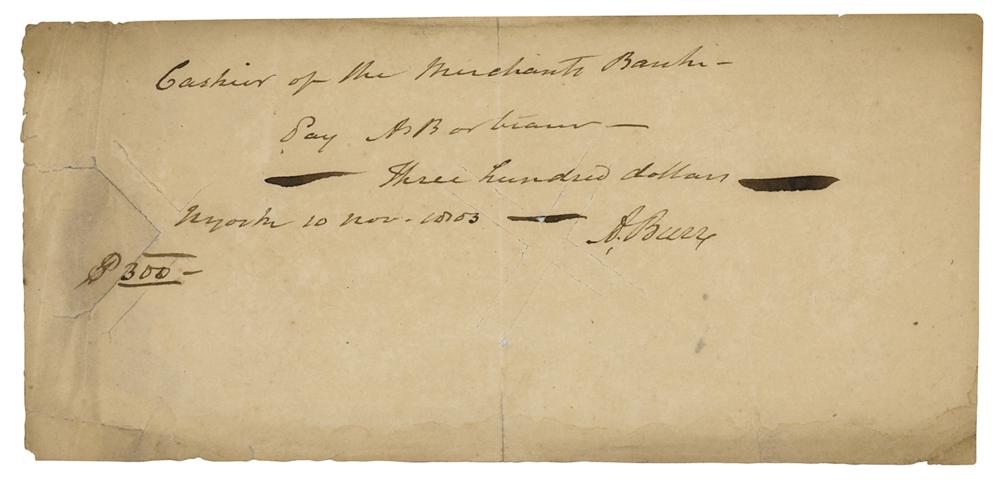 Cashier of the Merchants Bank –
Pay AB or bearer –
Three hundred dollars
Nyork 10 Nov. 1803
A. Burr
$ 300 –